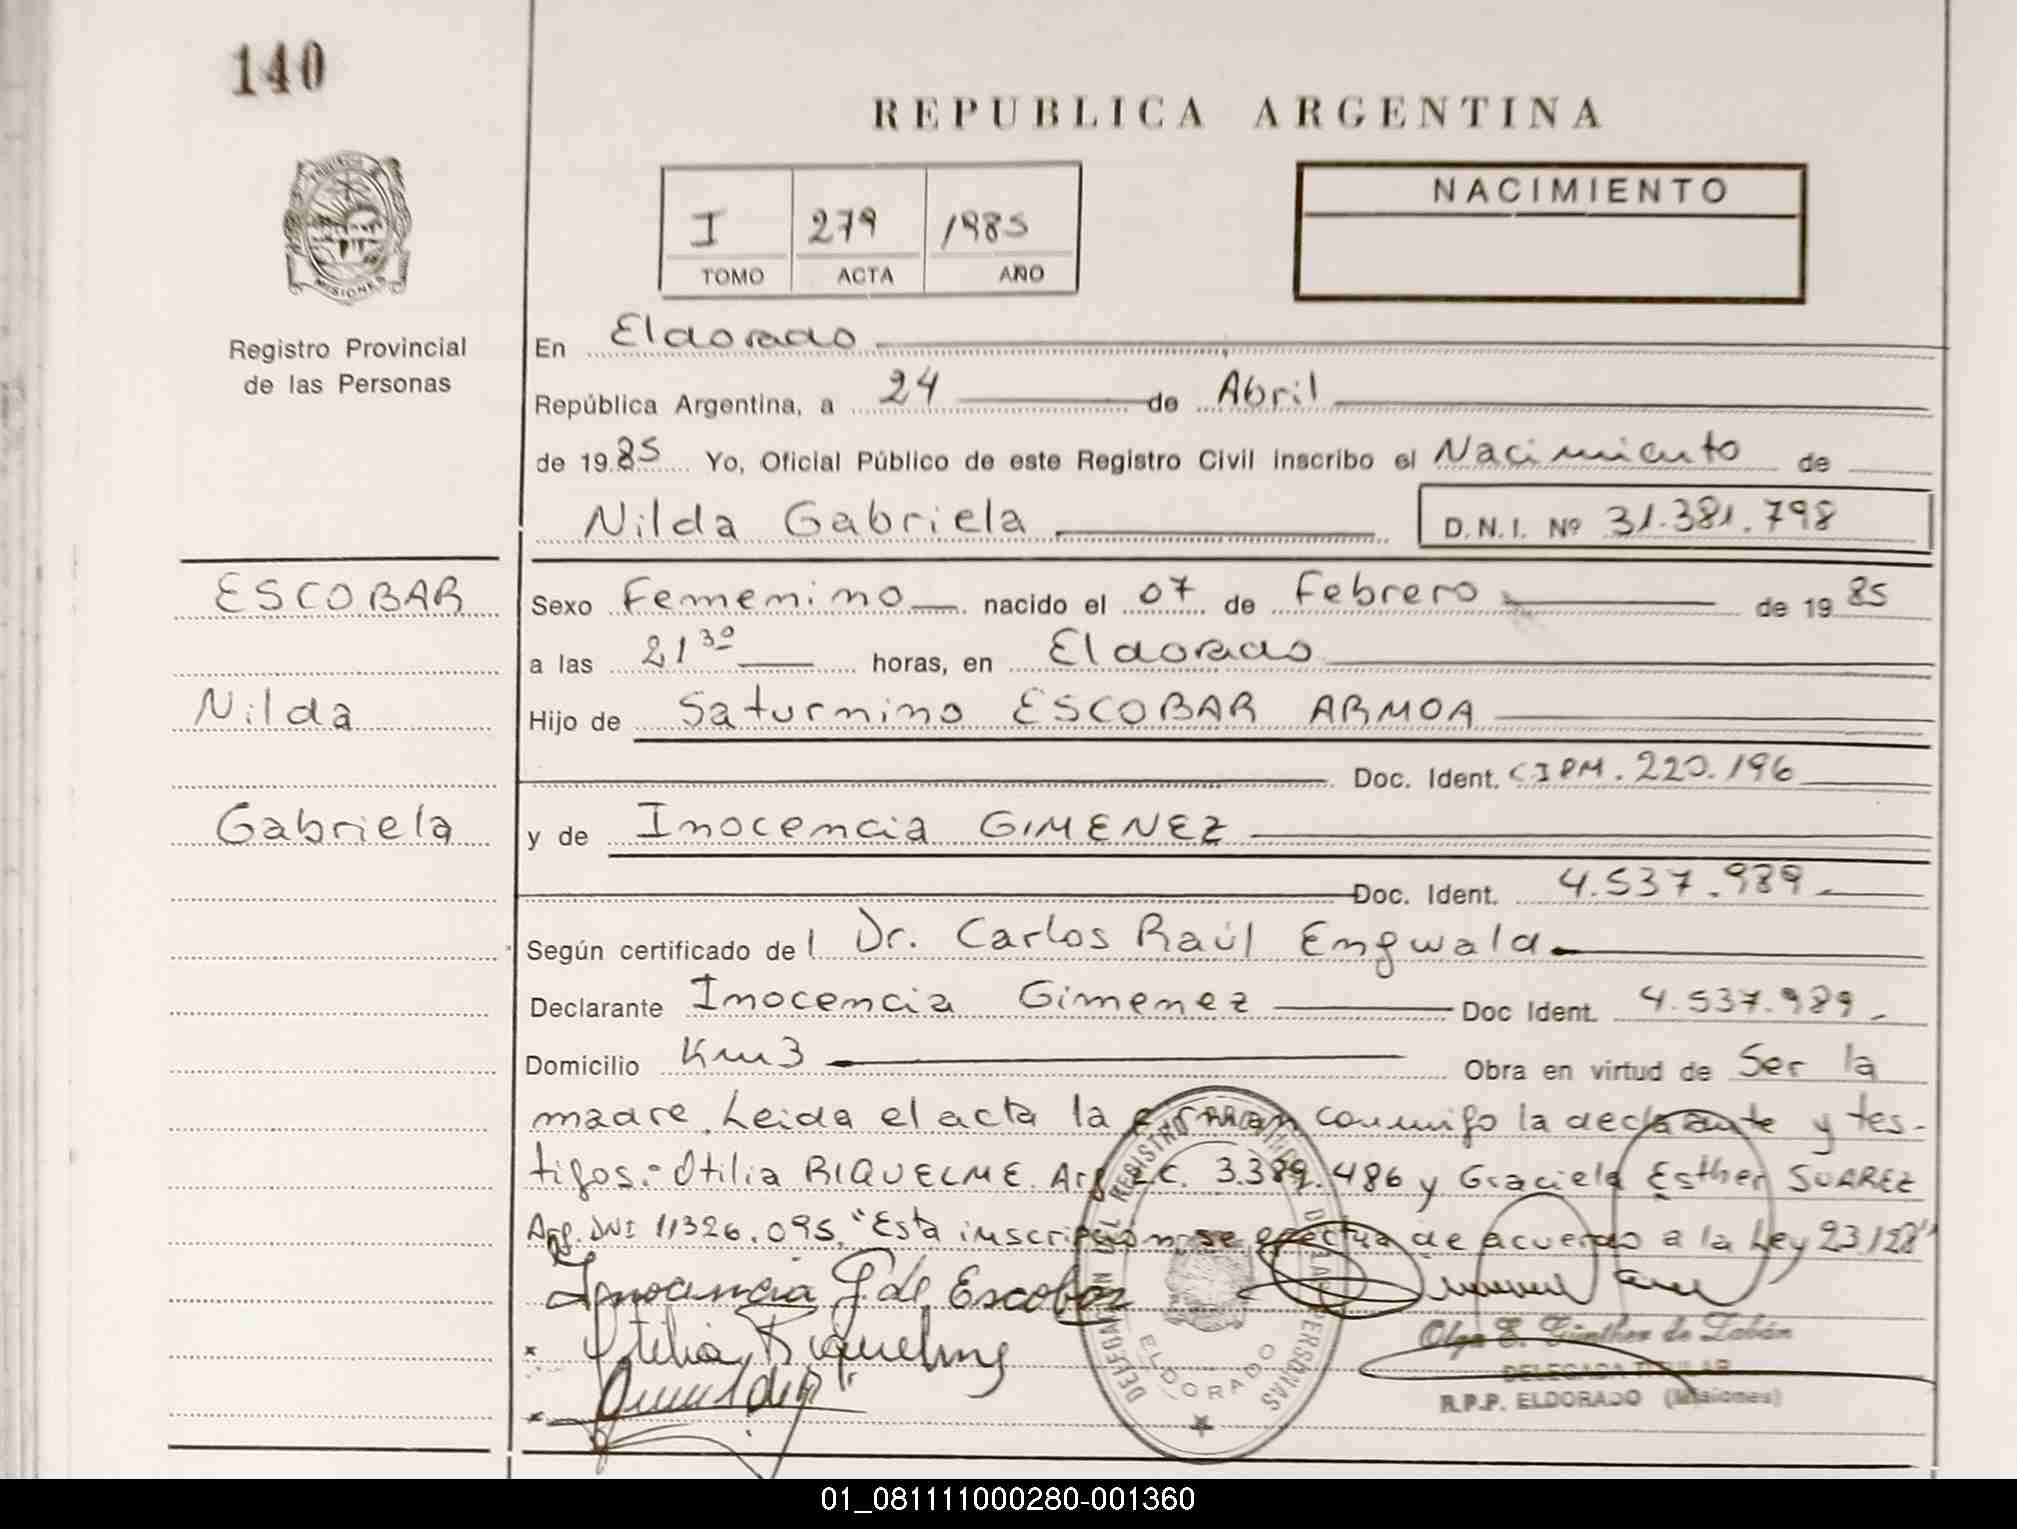 140
REPUBLICA ARGENTINA
NACIMIENTO
I 279 1985
TOMO ACTA AÑO
MISIONES
Registro Provincial
de las Personas
En Eldorado
República Argentina, a 24 de Abril
de 1985 Yo, Oficial Público de este Registro Civil inscribo el Nacimiento de
Nilda Gabriela D.N.I. Nº 31.381.798
ESCOBAR
Nilda
Gabriela
Sexo Femenino nacido el 07 de Febrero de 1985
a las 21 30 horas, en Eldorado
Hijo de Saturnino ESCOBAR ARMOA
Doc. Ident. CIPM. 220.196
y de Inocencia GIMENEZ
Doc. Ident. 4.537.989
Según certificado del Dr. Carlos Raúl Engwald
Declarante Inocencia Gimenez Doc Ident. 4.537.989
Domicilio Km 3 Obra en virtud de Ser la
madre. Leida el acta la firman conmigo la declarante y tes-
tigos:- Otilia RIQUELME. Arg. LC. 3.389.486 y Graciela Esther SUAREZ
Arg. DNI 11326.095. "Esta inscripción se efectua de acuerdo a la Ley 23128"
Ignocencia G de Escobar
Otilia Riquelme
Olga E. Günther de Tobán
DELEGADA TITULAR
R.P.P. ELDORADO (Misiones)
ELDORADO
01_081111000280-001360